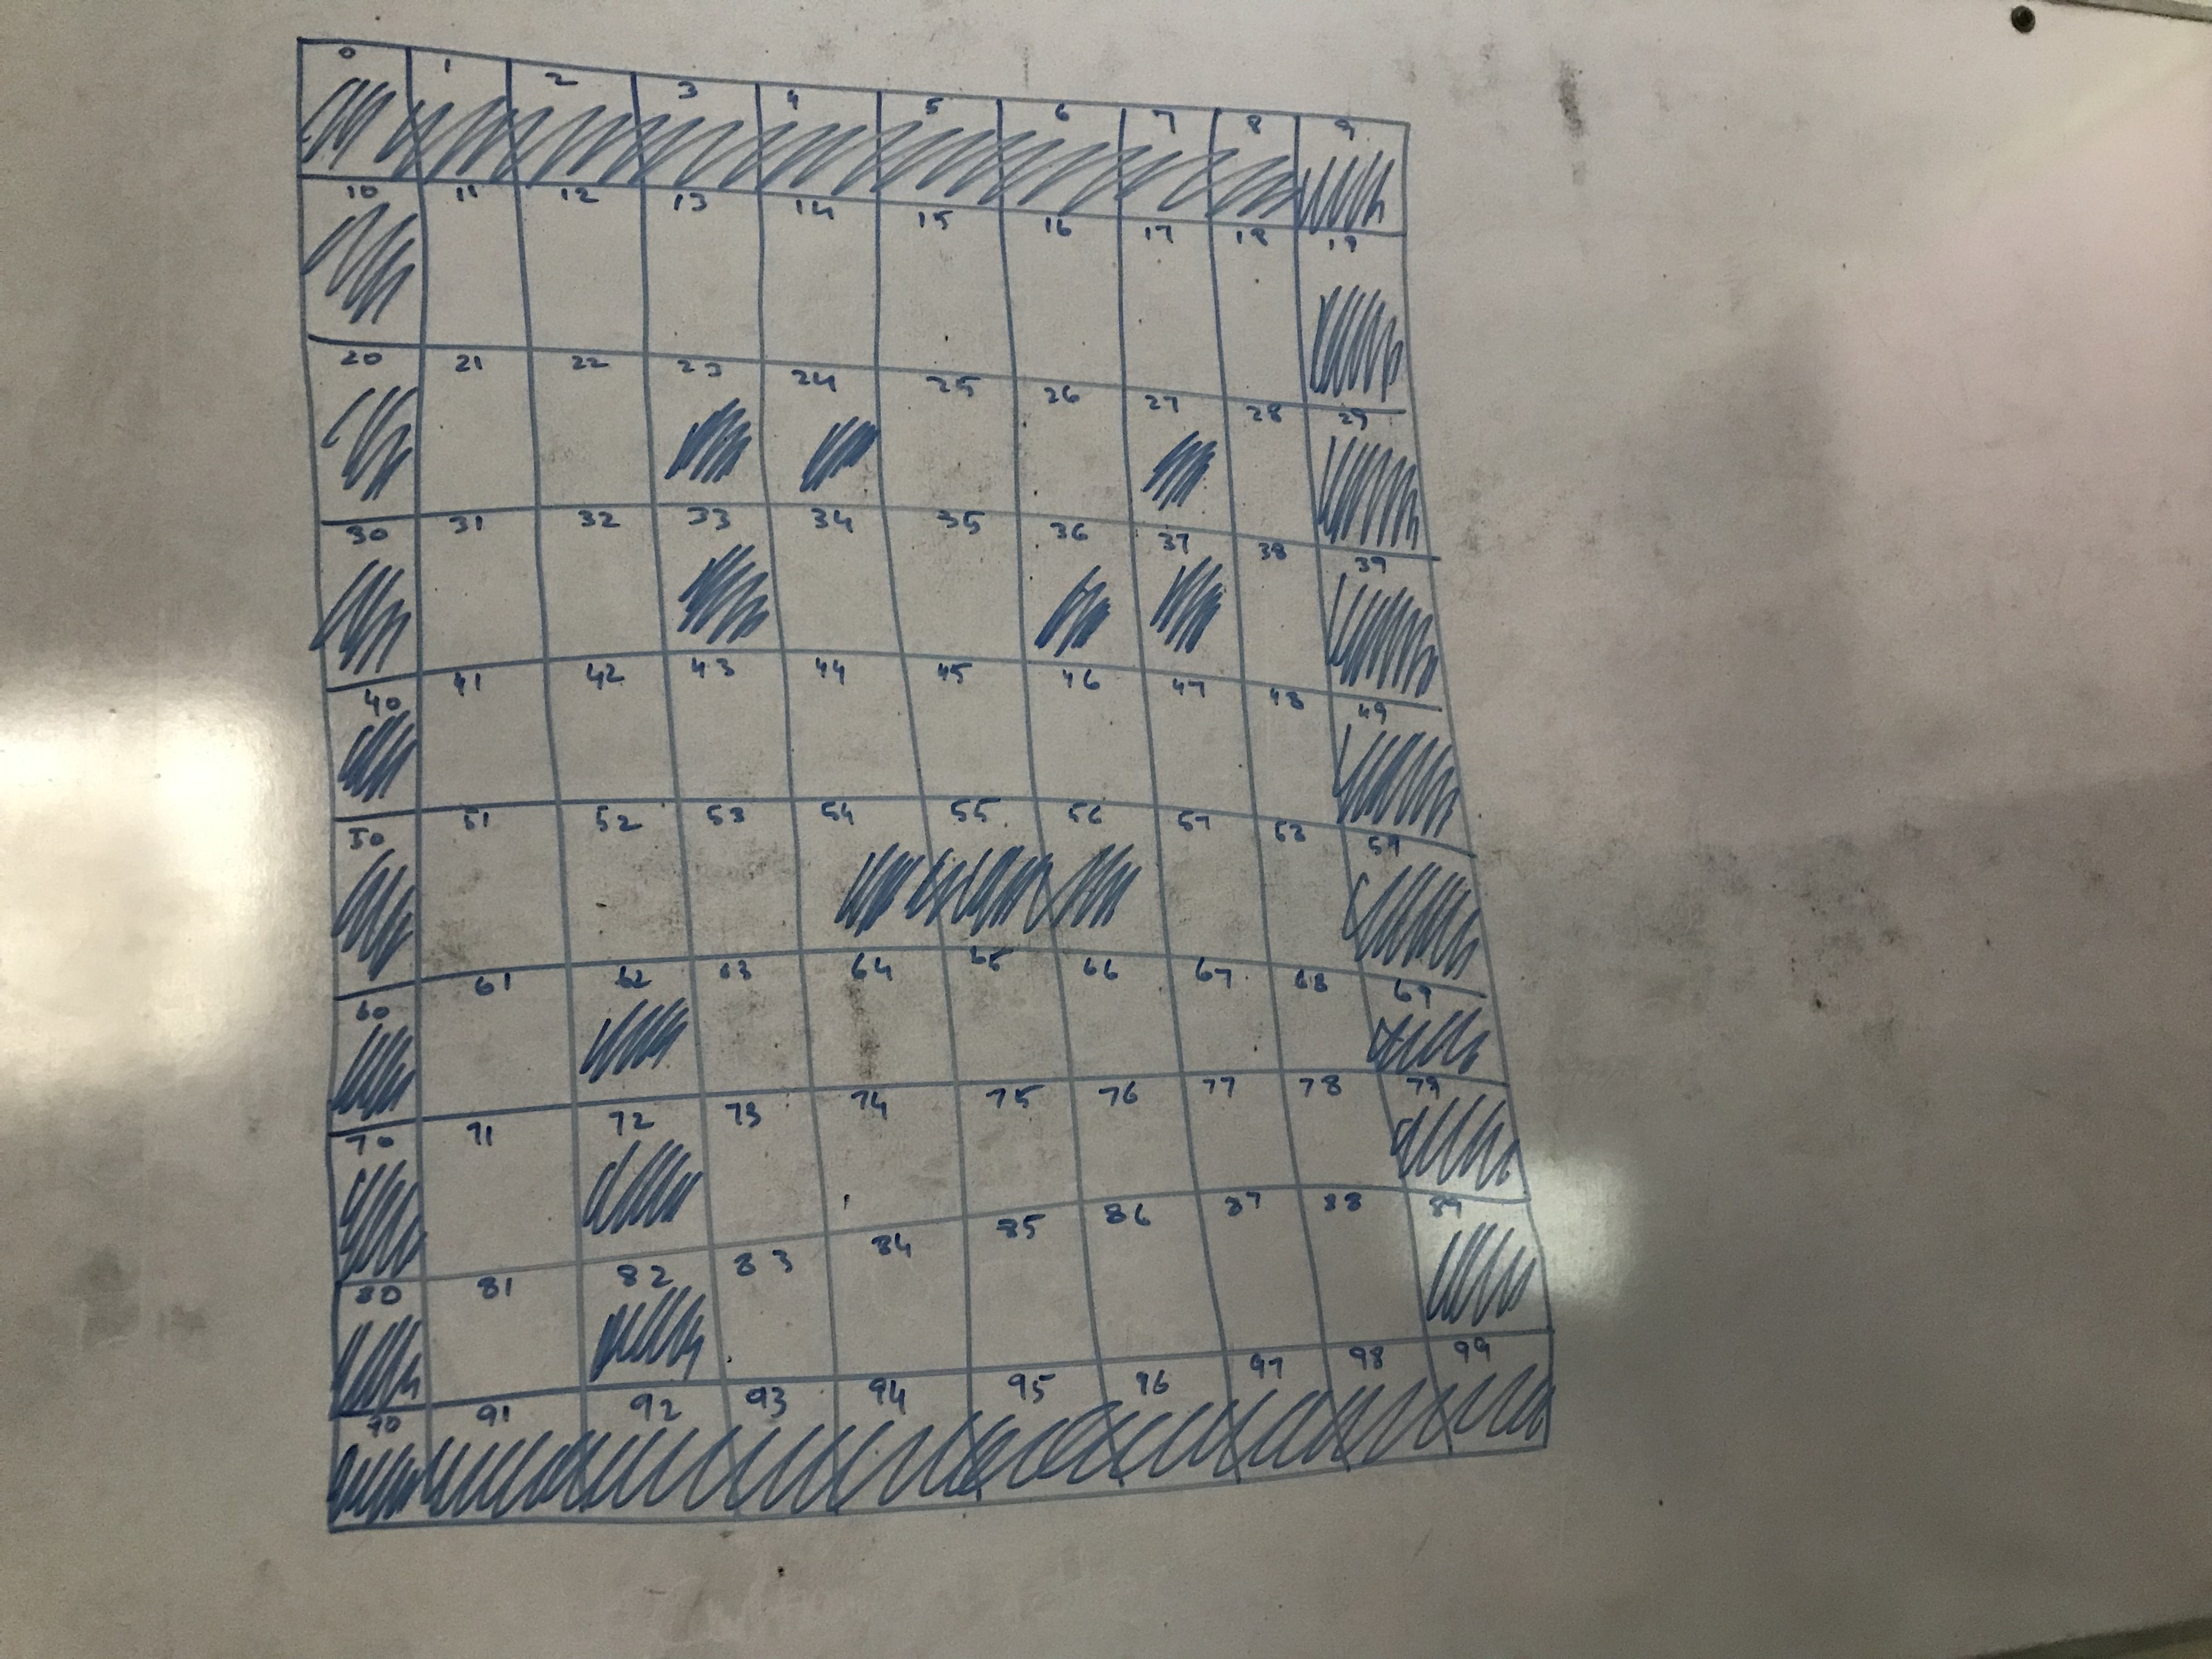 0 1 2 3 4 5 6 7 8 9
10 11 12 13 14 15 16 17 18 19
20 21 22 23 24 25 26 27 28 29
30 31 32 33 34 35 36 37 38 39
40 41 42 43 44 45 46 47 48 49
50 51 52 53 54 55 56 57 58 59
60 61 62 63 64 65 66 67 68 69
70 71 72 73 74 75 76 77 78 79
80 81 82 83 84 85 86 87 88 89
90 91 92 93 94 95 96 97 98 99